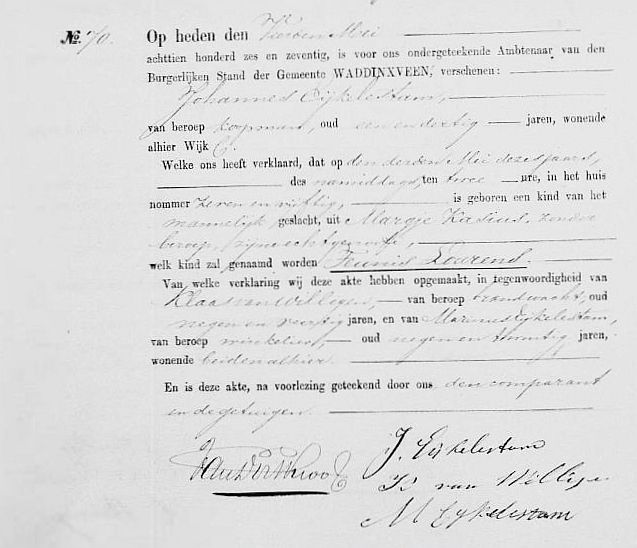 No. 70. Op heden den Vierden Mei
achttien honderd zes en zeventig, is voor ons ondergeteekende Ambtenaar van den
Burgerlijken Stand der Gemeente WADDINXVEEN, verschenen:
Johannes Eijkelestam,
van beroep koopman, oud een en dertig jaren, wonende
alhier Wijk C.
Welke ons heeft verklaard, dat op den derden Mei dezes jaars,
des namiddags, ten twee ure, in het huis
nommer zeven en vijftig, is geboren een kind van het
mannelijk geslacht, uit Margje Kasius, zonder
beroep, zijne echtgenoote,
welk kind zal genaamd worden Teunis Leurend.
Van welke verklaring wij deze akte hebben opgemaakt, in tegenwoordigheid van
Klaas van Willigen, van beroep brandwacht, oud
negen en veertig jaren, en van Marinus Eijkelestam,
van beroep winkelier, oud negen en twintig jaren,
wonende beiden alhier.
En is deze akte, na voorlezing geteekend door ons, den comparant
en de getuigen.
J. Eijkelestam
van Willige
M Eykelestam